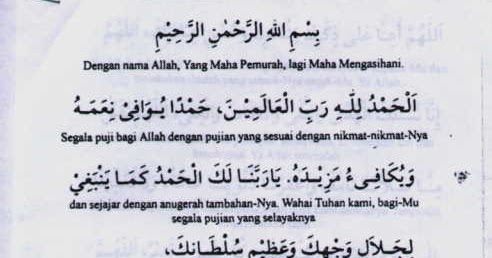 بِسْمِ اللهِ الرَّحْمٰنِ الرَّحِيْمِ
Dengan nama Allah, Yang Maha Pemurah, lagi Maha Mengasihani.
اَلْحَمْدُ لِلّٰهِ رَبِّ الْعَالَمِيْنَ، حَمْدًا يُوَافِىْ نِعَمَهُ
Segala puji bagi Allah dengan pujian yang sesuai dengan nikmat-nikmat-Nya
وَيُكَافِىءُ مَزِيْدَهُ. يَارَبَّنَا لَكَ الْحَمْدُ كَمَا يَنْبَغِيْ
dan sejajar dengan anugerah tambahan-Nya. Wahai Tuhan kami, bagi-Mu
segala pujian yang selayaknya
لِجَلَالِ وَجْهِكَ وَعَظِيْمِ سُلْطَانِكَ،